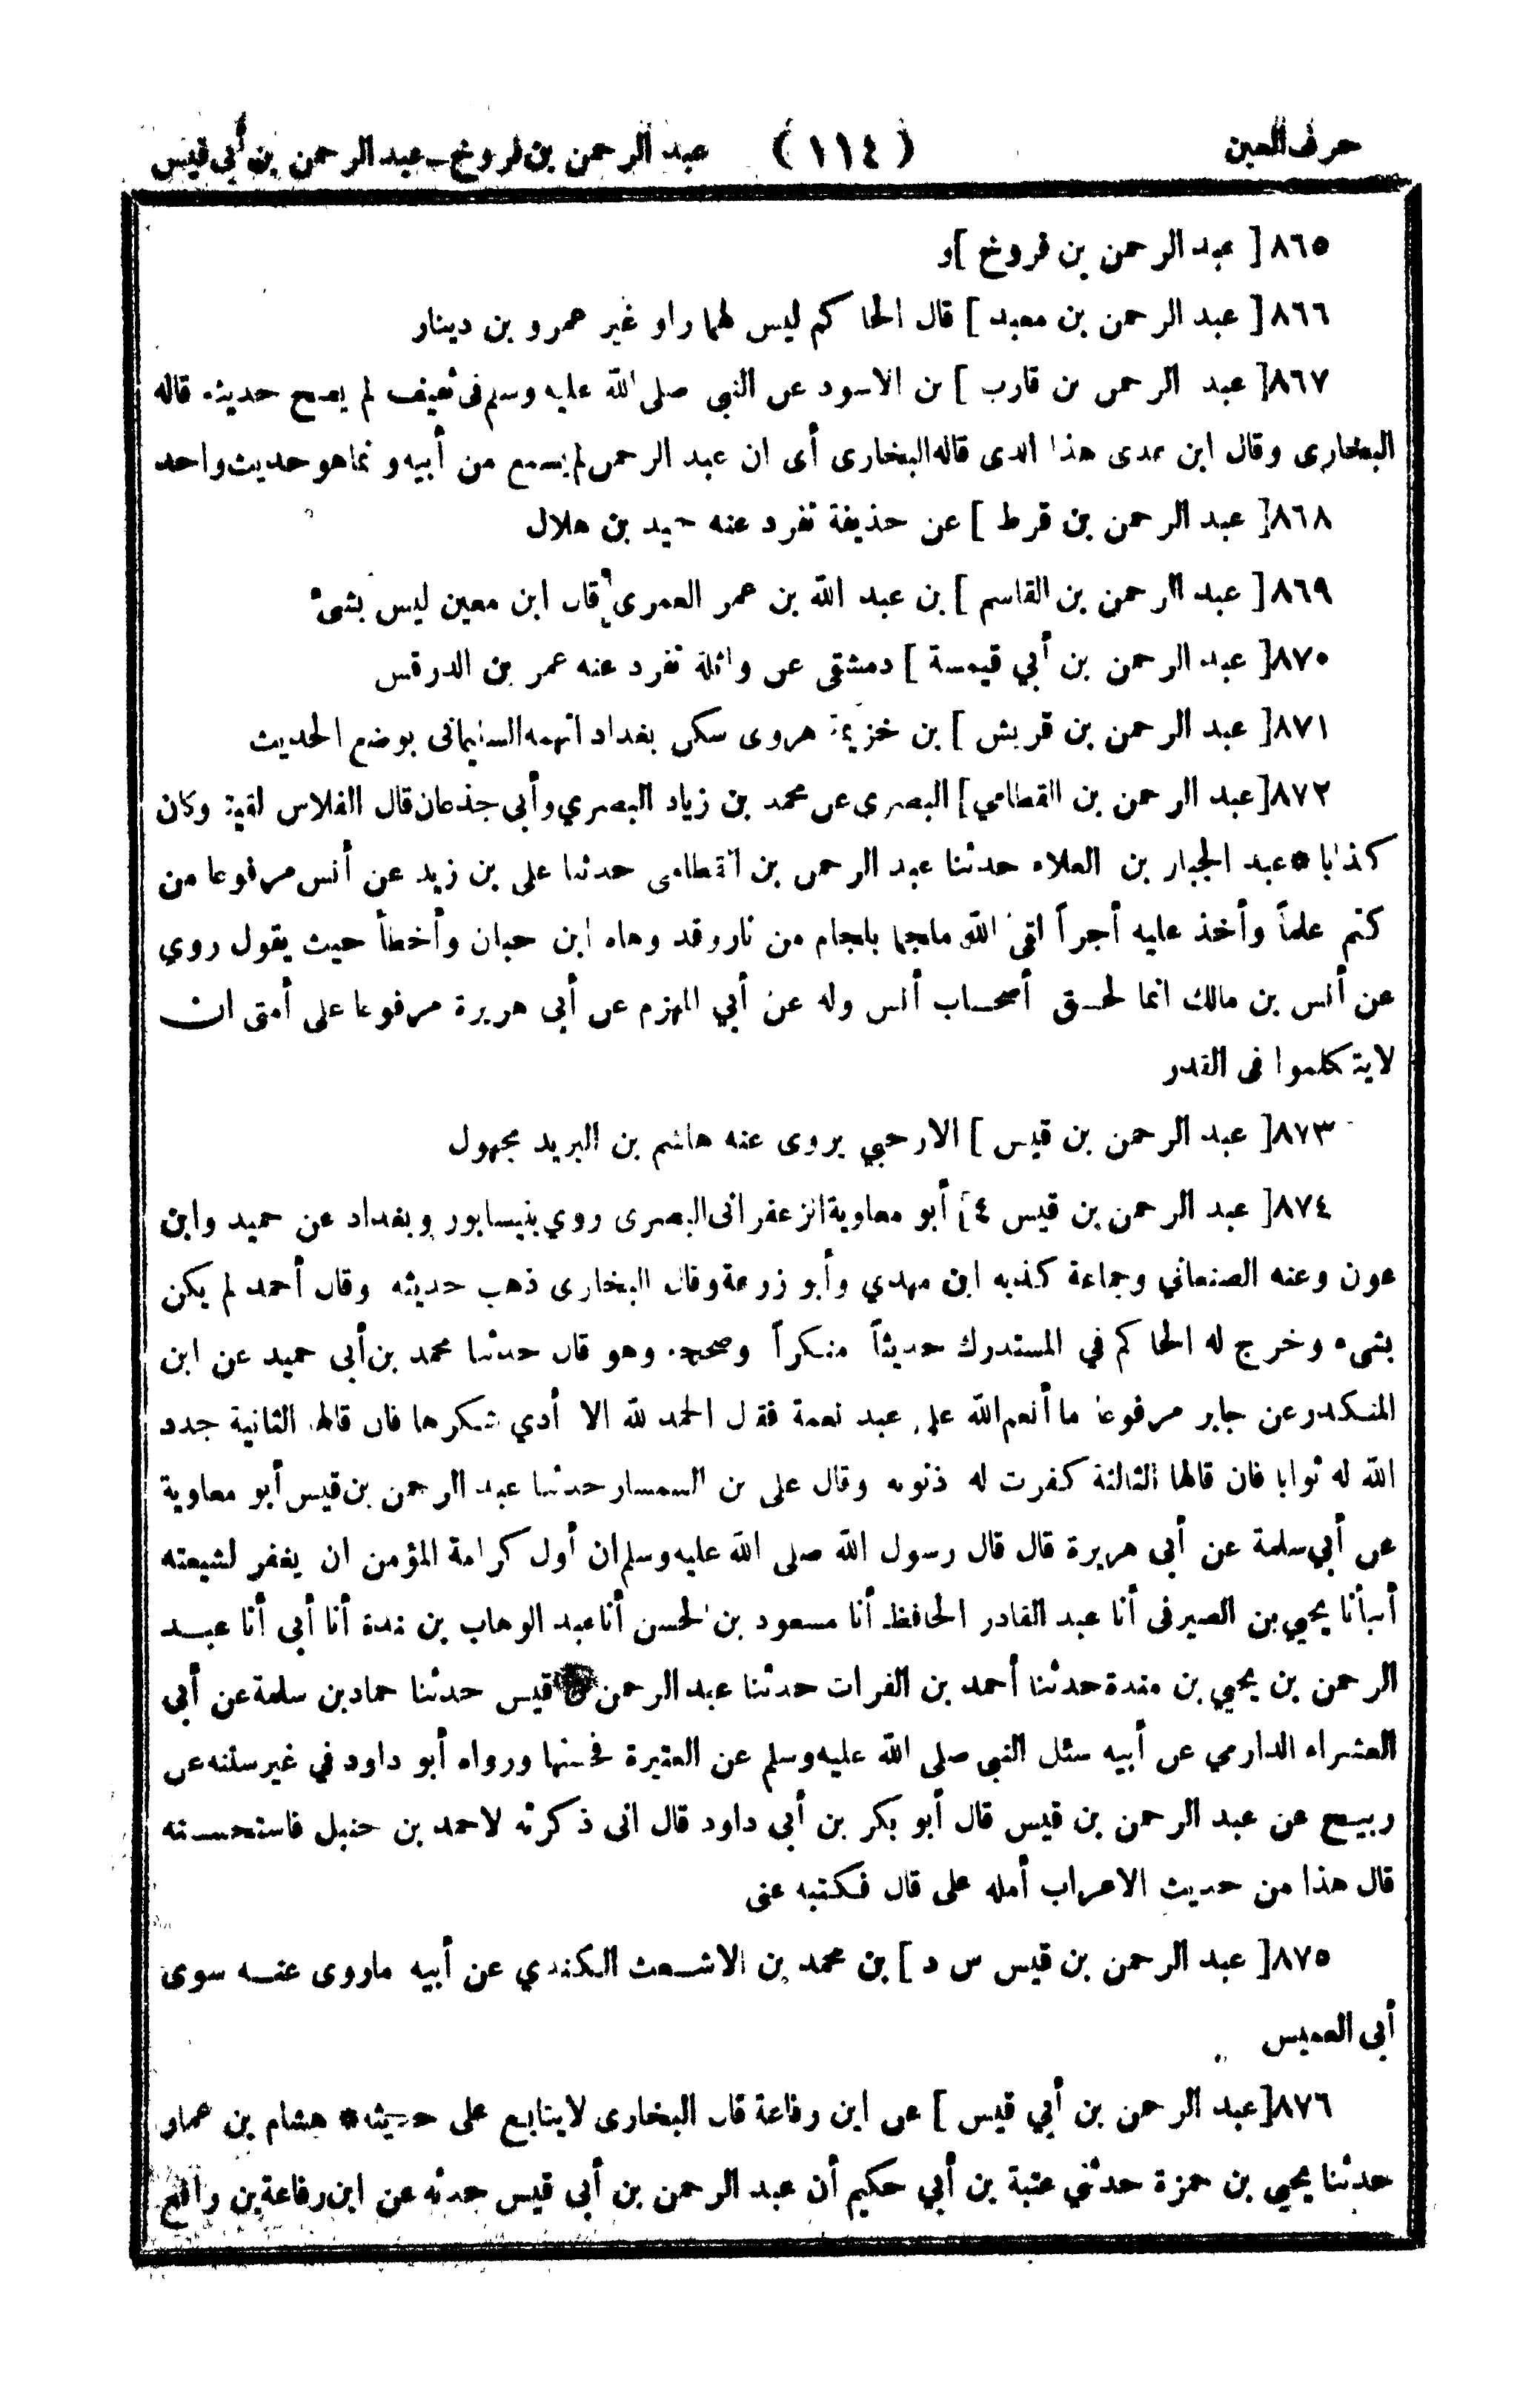 حرف العين (١١٤) عبد الرحمن بن فروخ - عبد الرحمن بن أبي قيس
٨٦٥[ عبد الرحمن بن فروخ ]و
٨٦٦[ عبد الرحمن بن معبد ] قال الحاكم ليس لهما راو غير عمرو بن دينار
٨٦٧[ عبد الرحمن بن قارب ] بن الاسود عن النبي صلى الله عليه وسلم في ثقيف لم يصح حديثه قاله
البخاري وقال ابن عدى هذا الذى قاله البخارى أى ان عبد الرحمن لم يسمع من أبيه و نما هو حديث واحد
٨٦٨[ عبد الرحمن بن قرط ] عن حذيفة تفرد عنه حميد بن هلال
٨٦٩[ عبد الرحمن بن القاسم ] بن عبد الله بن عمر العمرى قال ابن معين ليس بشىء
٨٧٠[ عبد الرحمن بن أبي قيمسة ] دمشقى عن واثلة تفرد عنه عمر بن الدرفس
٨٧١[ عبد الرحمن بن قريش ] بن خزيمة هروى سكن بغداد اتهمه السليمانى بوضع الحديث
٨٧٢[عبد الرحمن بن القطامي] البصرى عن محمد بن زياد البصري وأبى جذعان قال الفلاس لقيته وكان
كذابا * عبد الجبار بن العلاء حدثنا عبد الرحمن بن القطامى حدثنا على بن زيد عن أنس مرفوعا من
كتم علماً وأخذ عليه أجراً لقى الله ملجما بلجام من نار وقد وهاه ابن حبان وأخطأ حيث يقول روي
عن أنس بن مالك انما لحق أصحاب أنس وله عن أبي المهزم عن أبى هريرة مرفوعا على أمتى ان
لا يتكلموا فى القدر
٨٧٣[ عبد الرحمن بن قيس ] الارحبي يروى عنه هاشم بن البريد مجهول
٨٧٤[ عبد الرحمن بن قيس ٤] أبو معاوية الزعفرانى البصرى روي بنيسابور وبغداد عن حميد وابن
عون وعنه الصنعاني وجماعة كذبه ابن مهدي وأبو زرعة وقال البخارى ذهب حديثه وقال أحمد لم يكن
بشىء وخرج له الحاكم في المستدرك حديثاً منكراً وصححه وهو قال حدثنا محمد بن أبى حميد عن ابن
المنكدر عن جابر مرفوعا ما أنعم الله على عبد نعمة فقال الحمد لله الا أدي شكرها فان قالها الثانية جدد
الله له ثوابا فان قالها الثالثة كفرت له ذنوبه وقال على بن السمسار حدثنا عبد الرحمن بن قيس أبو معاوية
عن أبي سلمة عن أبى هريرة قال قال رسول الله صلى الله عليه وسلم ان أول كرامة المؤمن ان يغفر لشيعته
أنبأنا يحيي بن الصيرفى أنا عبد القادر الحافظ أنا مسعود بن الحسن أنا عبد الوهاب بن مندة أنا أبى أنا عبد
الرحمن بن يحيي بن مندة حدثنا أحمد بن الفرات حدثنا عبد الرحمن قيس حدثنا حماد بن سلمة عن أبى
العشراء الدارمي عن أبيه سئل النبى صلى الله عليه وسلم عن العتيرة فحسنها ورواه أبو داود في غير سننه عن
ربيع عن عبد الرحمن بن قيس قال أبو بكر بن أبى داود قال انى ذكرته لاحمد بن حنبل فاستحسنه
قال هذا من حديث الاعراب أمله على قال فكتبه عنى
٨٧٥[ عبد الرحمن بن قيس س د ] بن محمد بن الاشعث الكندي عن أبيه ماروى عنه سوى
أبى العميس
٨٧٦[عبد الرحمن بن أبي قيس ] عن ابن رفاعة قال البخارى لايتابع على حديثه * هشام بن عمار
حدثنا يحيي بن حمزة حدثني عتبة بن أبي حكيم أن عبد الرحمن بن أبى قيس حدثه عن ابن رفاعة بن رافع